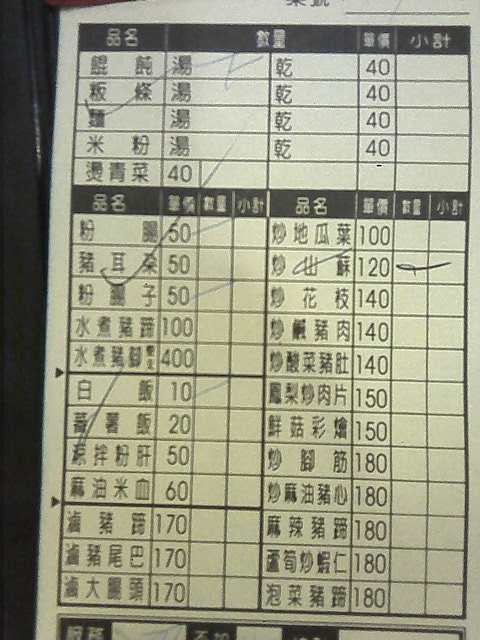 桌號
品名 數量 單價 小計
餛飩 湯 乾 40
粄條 湯 乾 40
麵 湯 乾 40
米粉 湯 乾 40
燙青菜 40
品名 單價 數量 小計 品名 單價 數量 小計
粉腸 50 炒地瓜葉 100
豬耳朶 50 炒山蘇 120
粉腸子 50 炒花枝 140
水煮豬蹄 100 炒鹹豬肉 140
水煮豬腳 400 炒酸菜豬肚 140
白飯 10 鳳梨炒肉片 150
蕃薯飯 20 鮮菇彩燴 150
涼拌粉肝 50 炒腳筋 180
麻油米血 60 炒麻油豬心 180
滷豬蹄 170 麻辣豬蹄 180
滷豬尾巴 170 蘆筍炒蝦仁 180
滷大腸頭 170 泡菜豬蹄 180